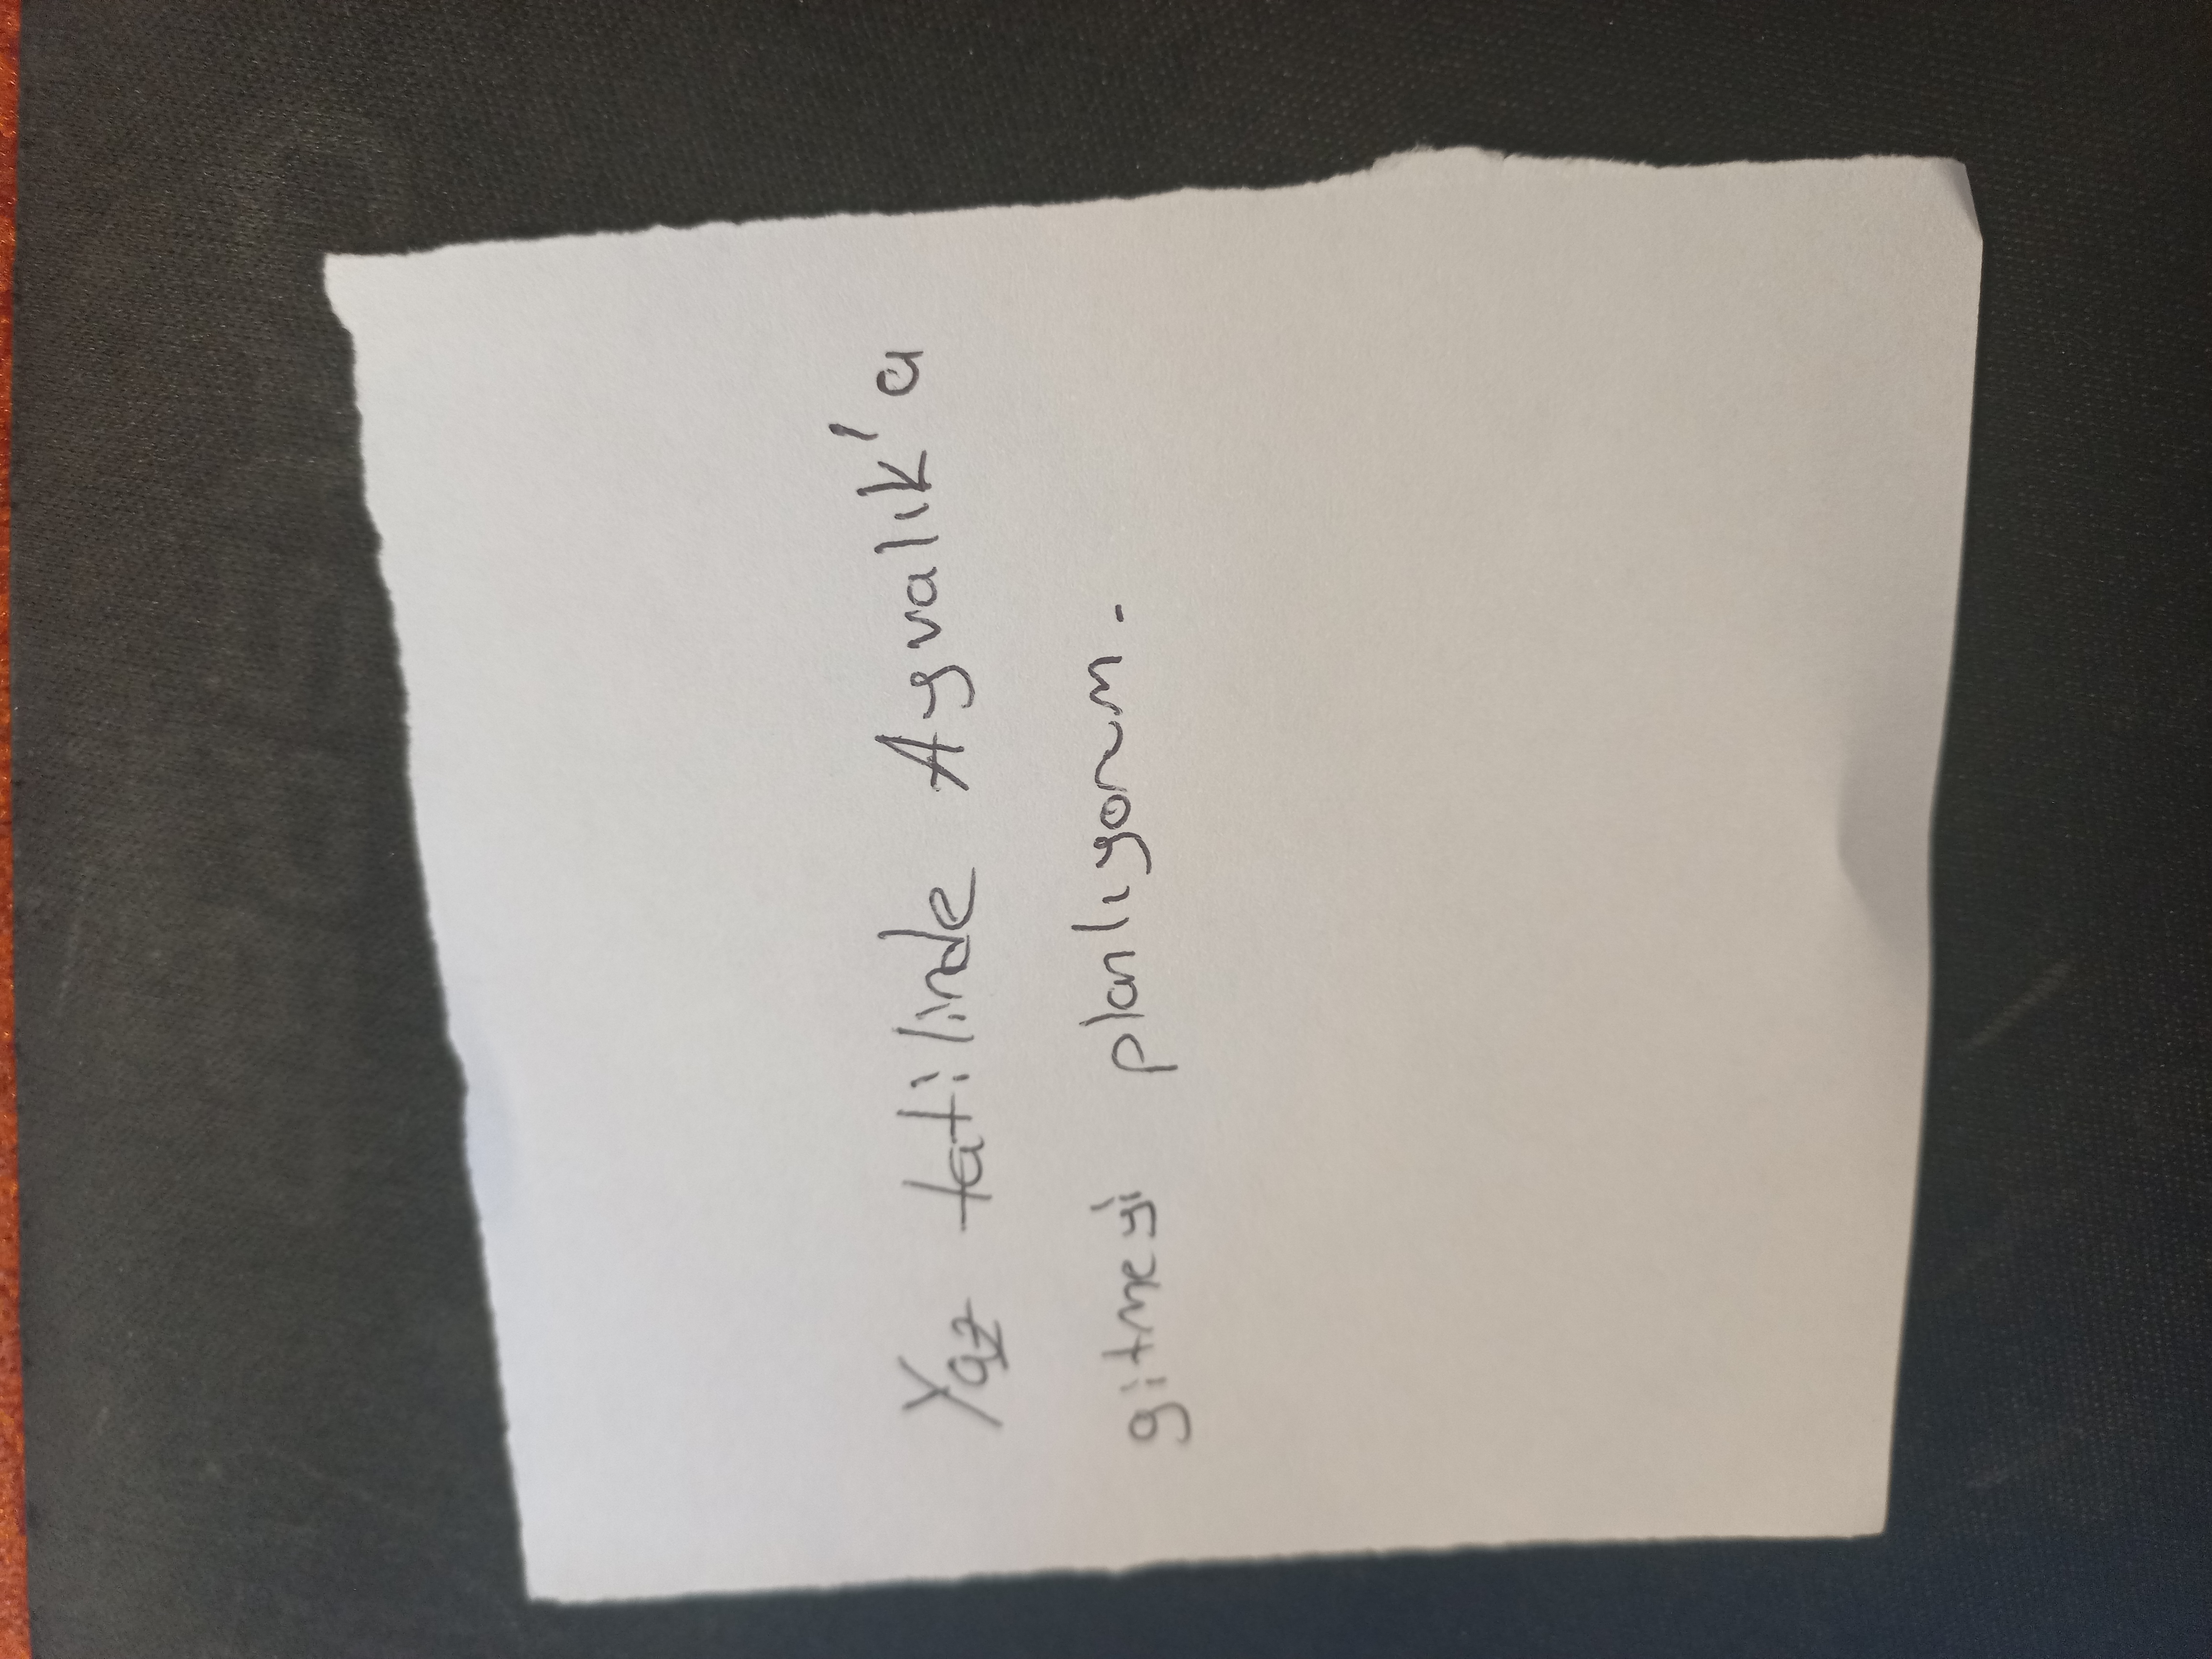 Yaz tatilinde Ayvalık'a
gitmeyi planlıyorum.